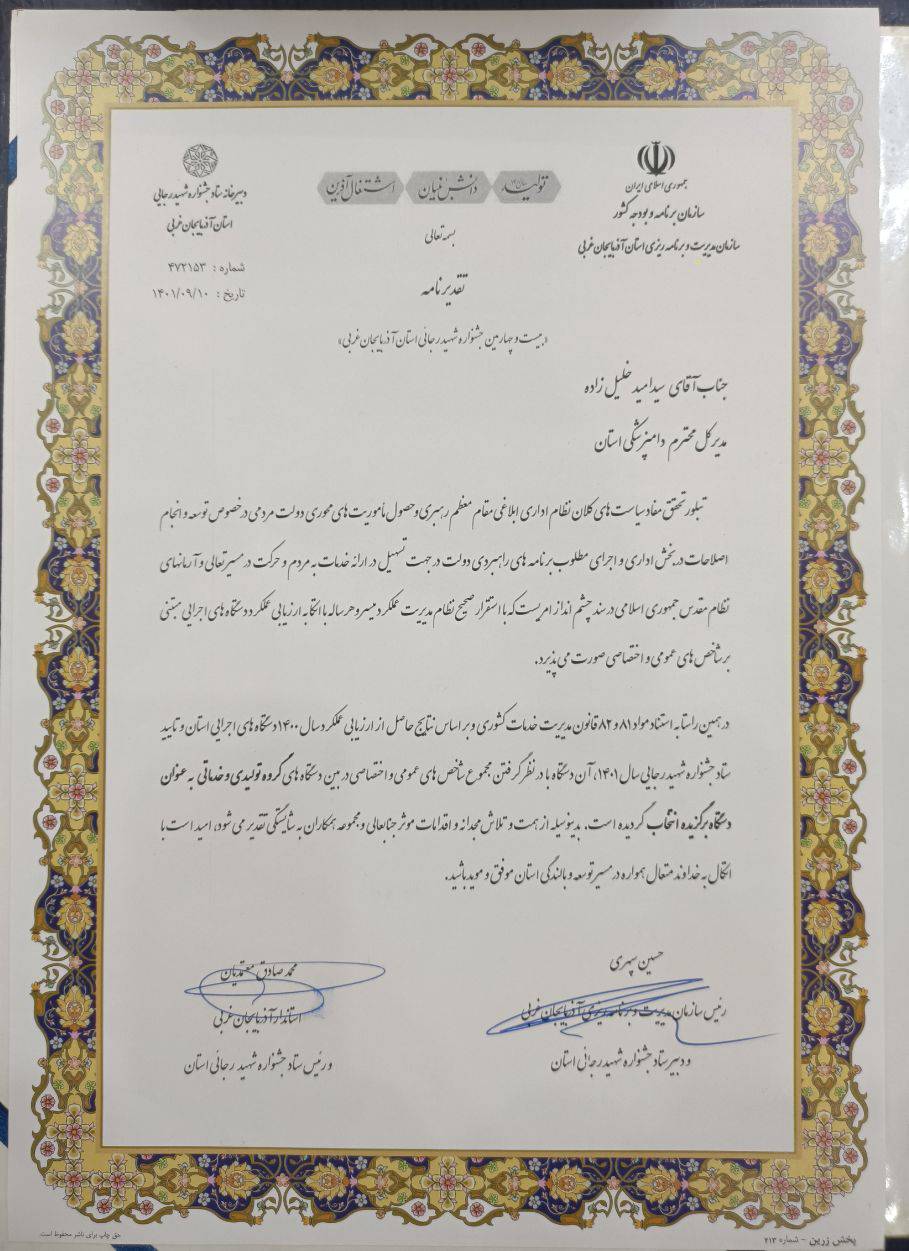 جمهوری اسلامی ایران
سازمان برنامه و بودجه کشور
سازمان مدیریت و برنامه ریزی استان آذربایجان غربی
تولید دانش بنیان اشتغال آفرین
دبیرخانه ستاد جشنواره شهید رجایی
استان آذربایجان غربی
شماره : ۴۷۲۱۵۳
تاریخ : ۱۴۰۱/۰۹/۱۰
بسمه تعالی
تقدیرنامه
«بیست و چهارمین جشنواره شهید رجائی استان آذربایجان غربی»
جناب آقای سید امید خلیل زاده
مدیر کل محترم دامپزشکی استان
تبلور تحقق مفاد سیاست های کلان نظام اداری ابلاغی مقام معظم رهبری و حصول مأموریت های محوری دولت مردمی در خصوص توسعه و انجام
اصلاحات در بخش اداری و اجرای مطلوب برنامه های راهبردی دولت در جهت تسهیل در ارائه خدمات به مردم و حرکت در مسیر تعالی و آرمانهای
نظام مقدس جمهوری اسلامی در سند چشم انداز امریست که با استقرار صحیح نظام مدیریت عملکرد میسر و هر ساله با اتکا به ارزیابی عملکرد دستگاه های اجرایی مبتنی
بر شاخص های عمومی و اختصاصی صورت می پذیرد.
در همین راستا به استناد مواد ۸۱ و ۸۲ قانون مدیریت خدمات کشوری و بر اساس نتایج حاصل از ارزیابی عملکرد سال ۱۴۰۰ دستگاه های اجرایی استان و تایید
ستاد جشنواره شهید رجایی سال ۱۴۰۱، آن دستگاه با در نظر گرفتن مجموع شاخص های عمومی و اختصاصی در بین دستگاه های گروه تولیدی و خدماتی به عنوان
دستگاه برگزیده انتخاب گردیده است. بدینوسیله از همت و تلاش مجدانه و اقدامات موثر جنابعالی و مجموعه همکاران به شایستگی تقدیر می شود، امید است با
اتکال به خداوند متعال همواره در مسیر توسعه و بالندگی استان موفق و موید باشید.
حسین سپهری
رئیس سازمان مدیریت و برنامه ریزی آذربایجان غربی
و دبیر ستاد جشنواره شهید رجائی استان
محمد صادق معتمدیان
استاندار آذربایجان غربی
و رئیس ستاد جشنواره شهید رجائی استان
پخش زرین - شماره ۲۱۳
حق چاپ برای ناشر محفوظ است.